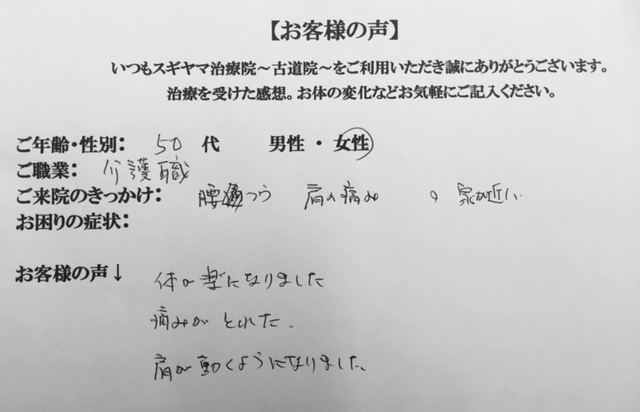 【お客様の声】
いつもスギヤマ治療院～古道院～をご利用いただき誠にありがとうございます。
治療を受けた感想。お体の変化などお気軽にご記入ください。
ご年齢・性別: 50 代 男性 ・ 女性
ご職業: 介護職
ご来院のきっかけ: 腰つう 肩の痛み 、家が近い
お困りの症状:
お客様の声↓
体が楽になりました
痛みが とれた.
肩が動くようになりました。